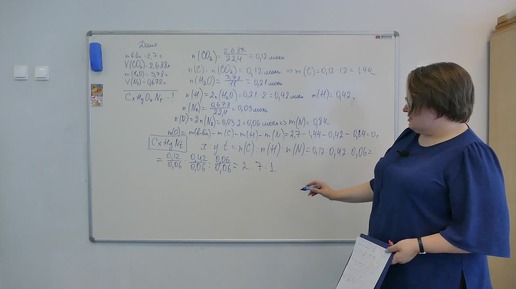 Дано
m(в-ва)=2,7г
V(CO₂)=2,688л
m(H₂O)=3,78г
V(N₂)=0,672л
CxHyOzNt-?
n(CO₂)=2,688/22,4=0,12 моль
n(C)=n(CO₂)=0,12 моль ⇒ m(C)=0,12·12=1,44г
n(H₂O)=3,78/18=0,21 моль
n(H)=2n(H₂O)=0,21·2=0,42 моль m(H)=0,42
n(N₂)=0,672/22,4=0,03 моль
n(N)=2n(N₂)=0,03·2=0,06 моль ⇒ m(N)=0,84
m(O)=m(в-ва)-m(C)-m(H)-m(N)=2,7-1,44-0,42-0,84=0г
CxHyNt
n(C):n(H):n(N)=0,12:0,42:0,06=
=0,12/0,06:0,42/0,06:0,06/0,06=2:7:1